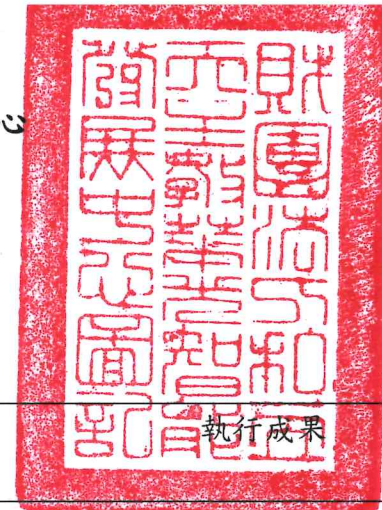 心
財團法人私立
天主教華光智能
發展中心圖記
執行成果